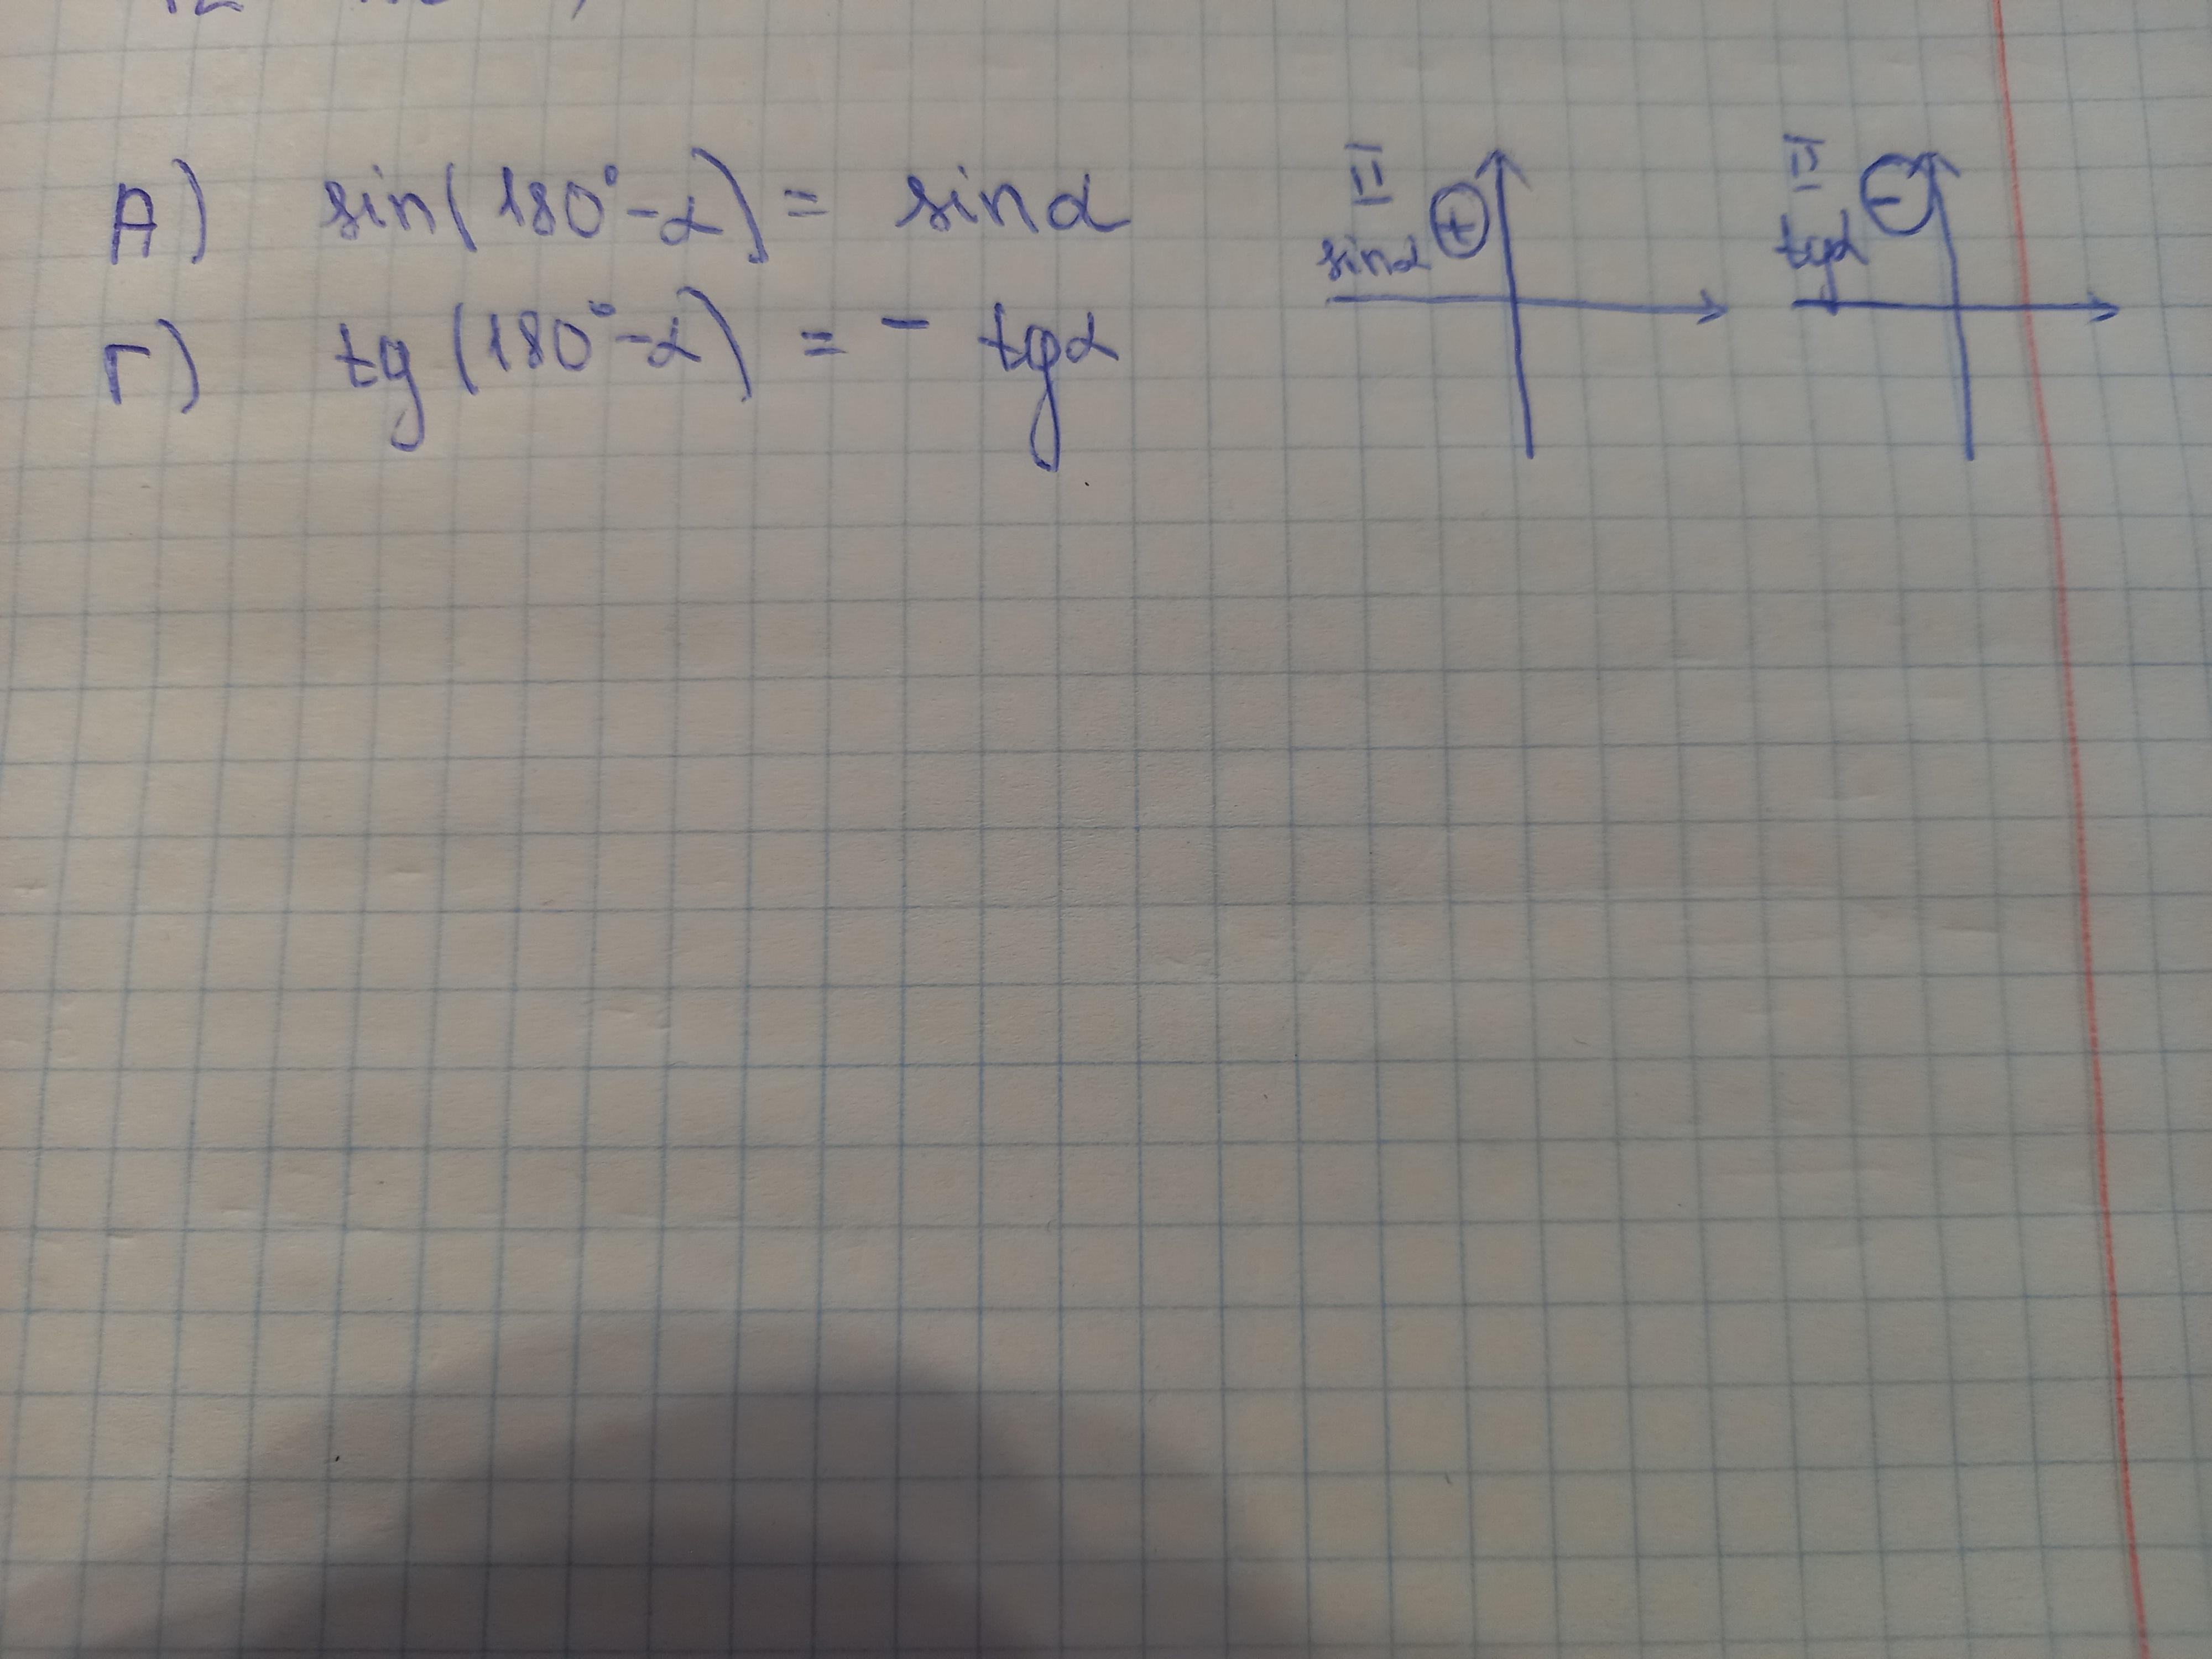 А) sin(180°-α) = sinα
Г) tg(180°-α) = - tgα
II
sinα +
II
tgα -